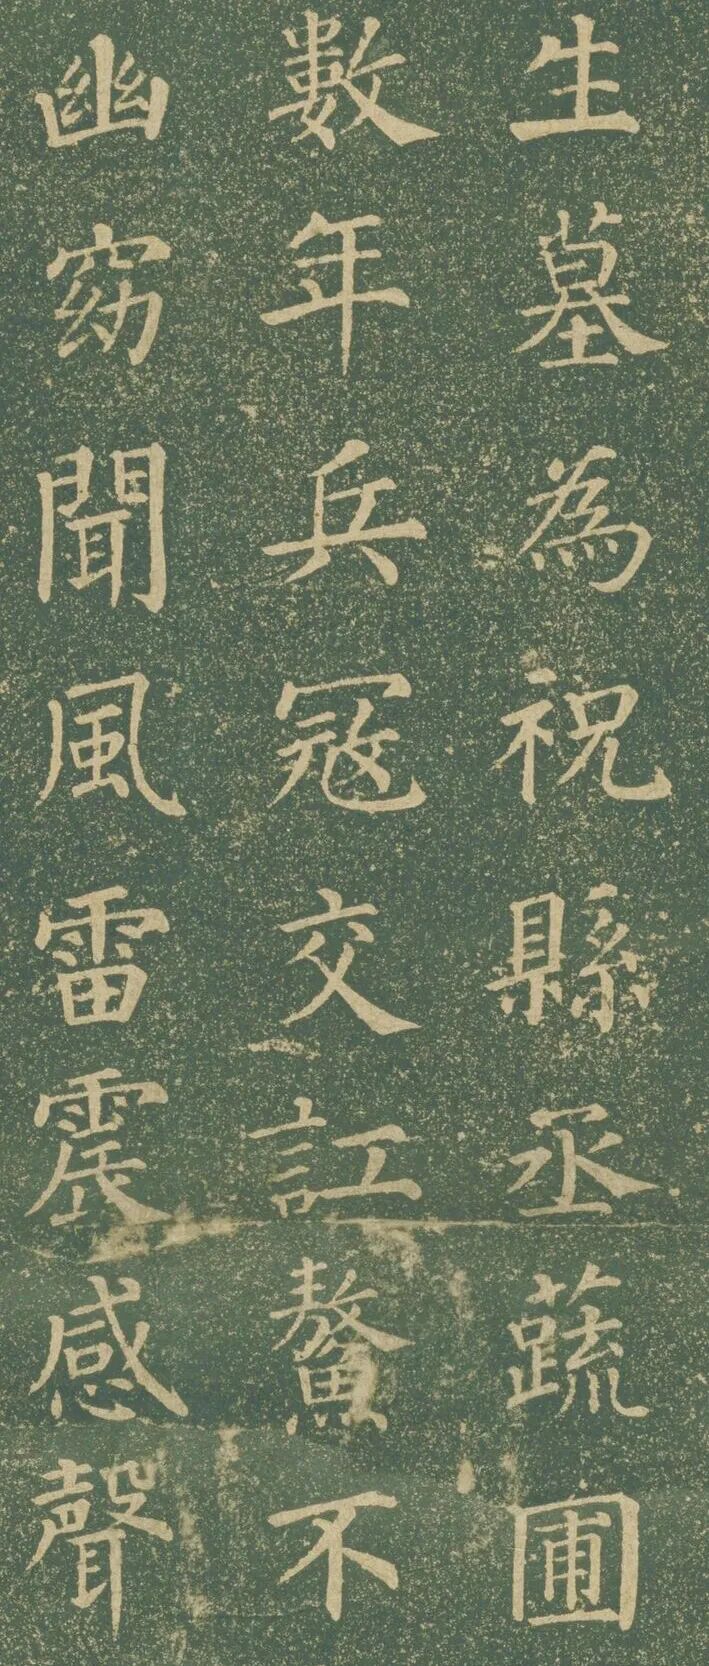 生墓為祝縣丞蔬圃
數年兵冦交訌鰲不
幽窈聞風雷震感聲